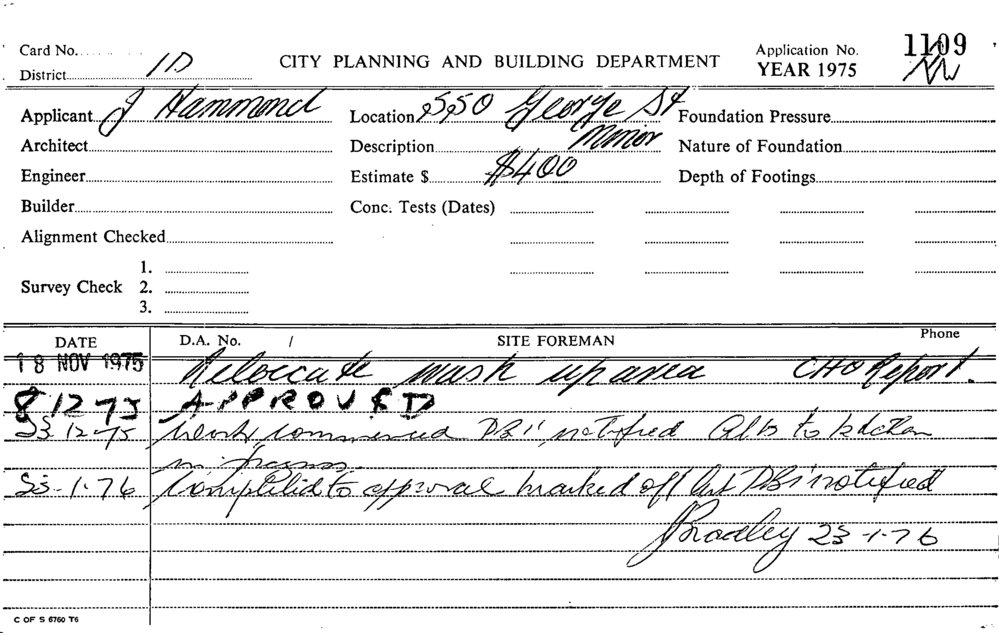 Card No.
District 1D
CITY PLANNING AND BUILDING DEPARTMENT
Application No. 1109
YEAR 1975
Applicant J Hammond
Location 550 George St
Foundation Pressure
Architect
Description Minor
Nature of Foundation
Engineer
Estimate $ $400
Depth of Footings
Builder
Conc. Tests (Dates)
Alignment Checked
Survey Check 1.
2.
3.
DATE D.A. No. / SITE FOREMAN Phone
18 NOV 1975 Relocate wash up area CHO Report.
8 12 75 APPROVED
23-12-75 Work commenced DBI notified Alts to kitchen
in progress
23-1-76 Completed to approval marked off DBI notified
Bradley 23-1-76
C OF S 6760 T6